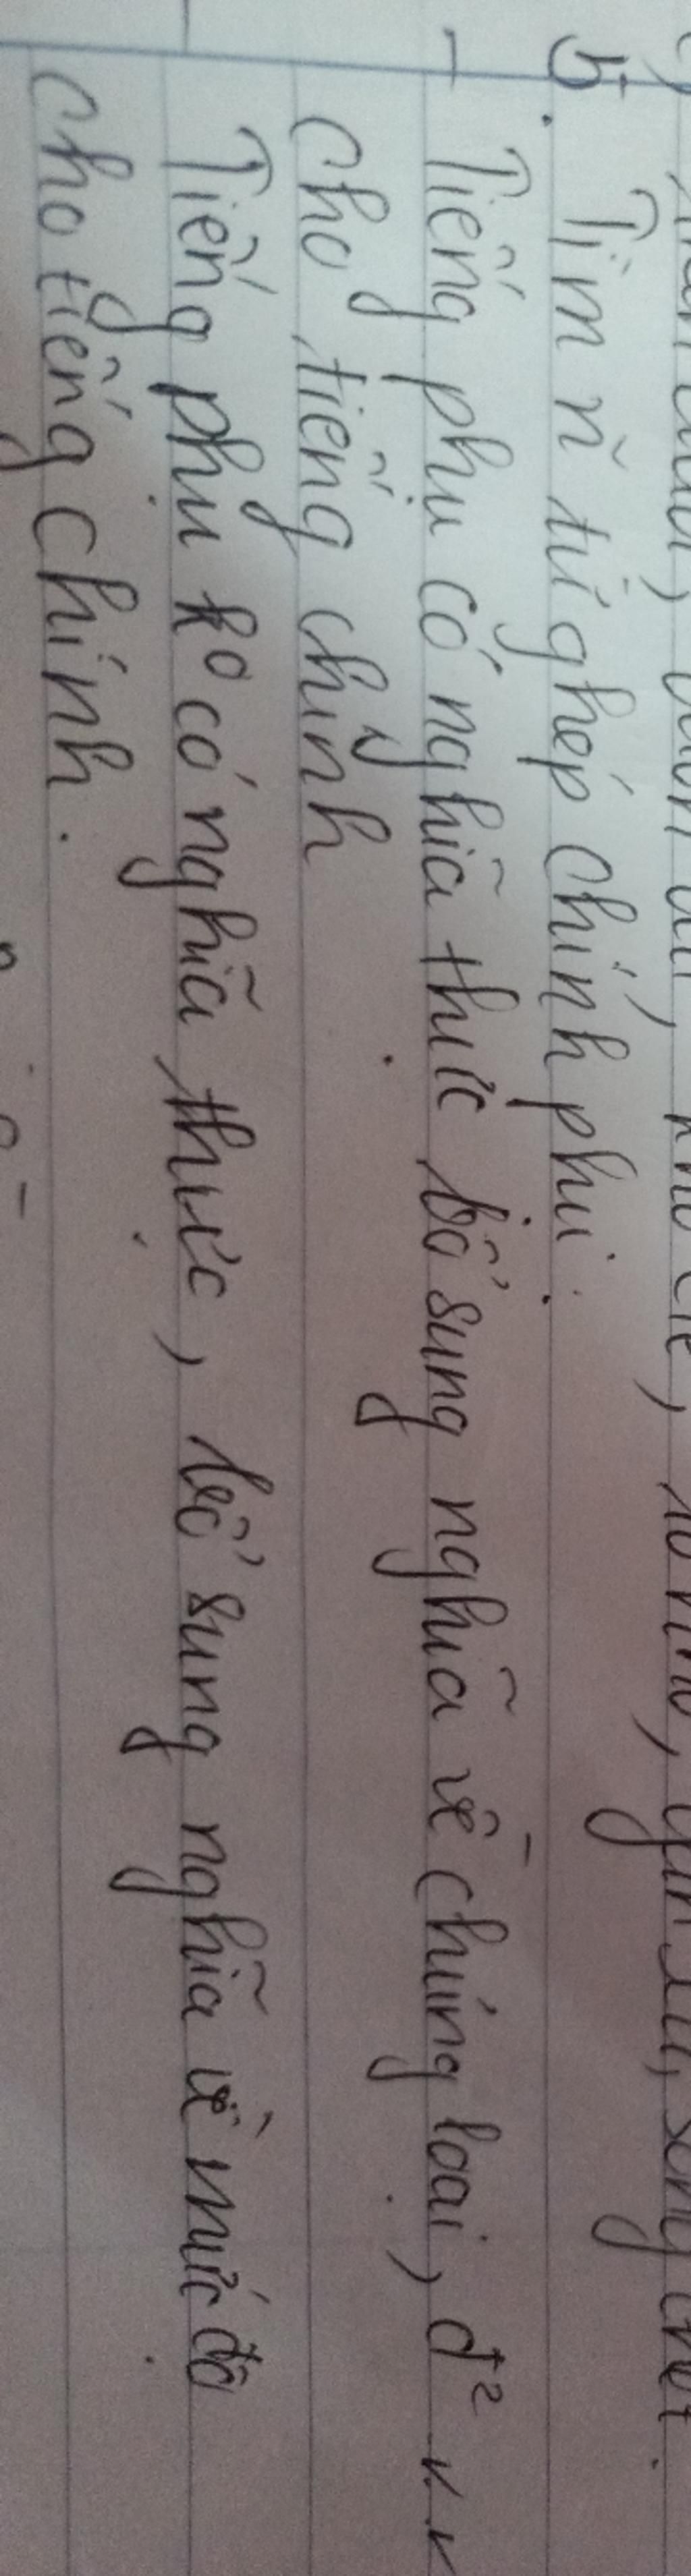 5. Tìm ñ từ ghép chính phụ.
- Tiếng phụ có nghĩa thực bổ sung nghĩa về chủng loại, đ²
cho tiếng chính
Tiếng phụ k⁰ có nghĩa thực, bổ sung nghĩa về mức độ
cho tiếng chính.